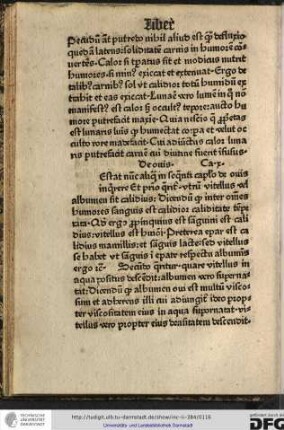 Liber
Precidū āt putrebo nihil aliud est q̄
q̄dā latens: soliditatē carnis in humorē cō
uertēs. Calor si tꝑatus sit et modicus nutrit
humores. si min⁹ exiccat et extenuat. Ergo de
talib⁹ carnib⁹ sol vt calidior totū humidū ex
trahit et eas exiccat. Lunaē vero lumē in q̄ nō
manifest⁹ est calor s̄ occult⁹ tepore: aucto hu
more putrefacit maxie.
est lunaris luīs q̄ humectat corꝑa et velut oc
culto rore madefacit. Cui adiūctus calor luna
ris putrefacit carnē cui diutine fuerit ifusus.
De ouis. Ca. x.
Estat nūc aliq̄ in seqn̄ti capľo de ouis
inq̄rere Et prio q̄rit̄. vtrū vitellus ad
albumen sit calidius: Dicendū q̄ inter om̄es
humores sanguis est calidior caliditate
Ad ergo ꝓpinquius est saguini est cali
dius: vitellus est hmōi. Preterea epar est ca
lidius mamillis: et saguis lacte: sed vitellus
se habet vt saguis i epate respectu albuminis
ergo ic̄. Decido q̄ritur. quare vitellus in
aqua positus descēdit: albumen vero superna
tat: Dicendū q̄ albumen oui est multū visco
sum et adherens illi cui adiungit̄ ideo prop
ter viscositatem eius in aqua supernatat. vi
tellus vero propter eius densitatem descendit.
http://tudigit.ulb.tu-darmstadt.de/show/inc-ii-384/0116
Universitäts- und Landesbibliothek Darmstadt
DFG